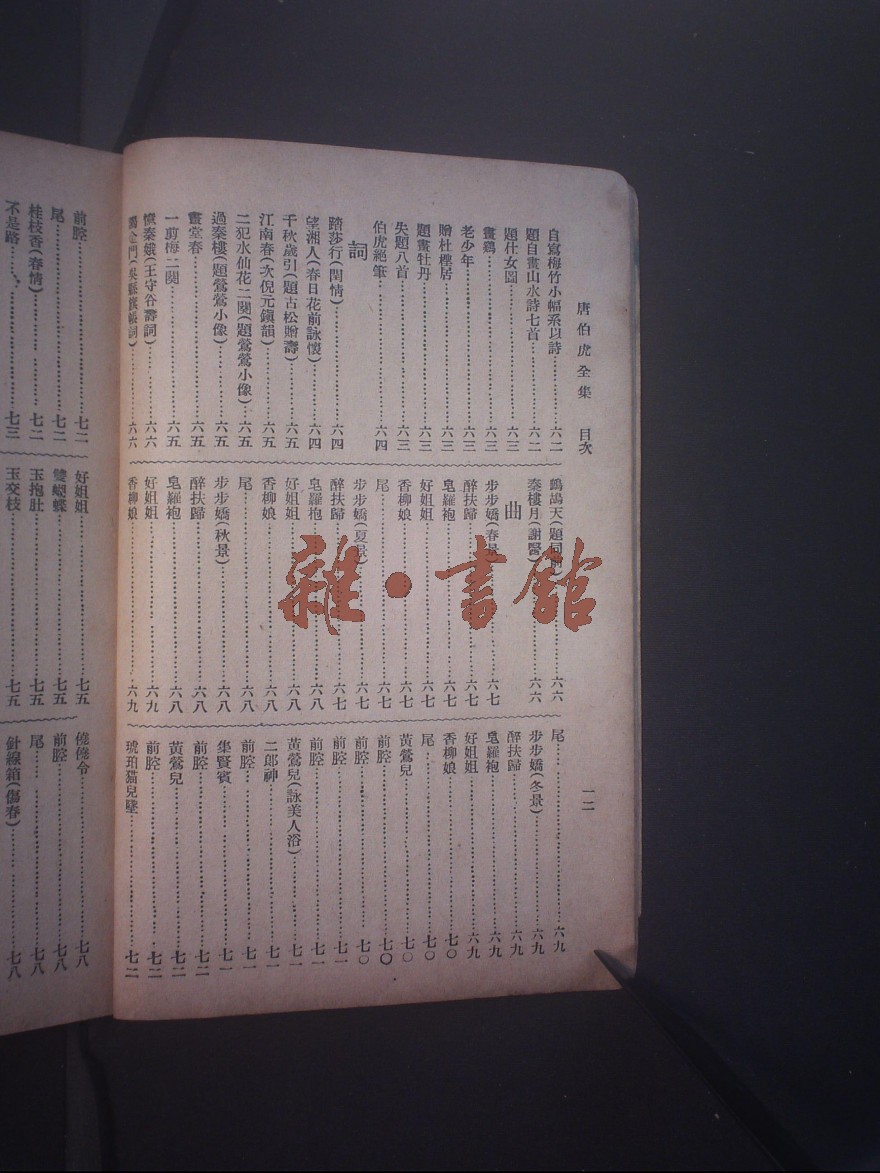 唐伯虎全集 目次 一二
自寫梅竹小幅系以詩……六二
題自畫山水詩七首……六二
題仕女圖……六三
畫鷄……六三
老少年……六三
贈杜檉居……六三
題畫牡丹……六三
失題八首……六三
伯虎絕筆……六四
詞
踏莎行(閨情)……六四
望湘人(春日花前詠懷)……六四
千秋歲引(題古松贈壽)……六五
江南春(次倪元鎭韻)……六五
二犯水仙花二闋(題鶯鶯小像)……六五
過秦樓(題鶯鶯小像)……六五
畫堂春……六五
一剪梅二闋……六五
憶秦娥(王守谷壽詞)……六六
謁金門(吳縣旗帳詞)……六六
鷓鴣天(題同前)……六六
秦樓月(謝醫)……六六
曲
步步嬌(春景)……六七
醉扶歸……六七
皂羅袍……六七
好姐姐……六七
香柳娘……六七
尾……六七
步步嬌(夏景)……六七
醉扶歸……六七
皂羅袍……六八
好姐姐……六八
香柳娘……六八
尾……六八
步步嬌(秋景)……六八
醉扶歸……六八
皂羅袍……六八
好姐姐……六九
香柳娘……六九
尾……六九
步步嬌(冬景)……六九
醉扶歸……六九
皂羅袍……六九
好姐姐……六九
香柳娘……七〇
尾……七〇
黃鶯兒……七〇
前腔……七〇
前腔……七〇
前腔……七一
前腔……七一
黃鶯兒(詠美人浴)……七一
二郎神……七一
前腔……七一
集賢賓……七一
前腔……七二
黃鶯兒……七二
前腔……七二
琥珀猫兒墜……七二
前腔……七二
尾……七二
桂枝香(春情)……七二
不是路……七三
好姐姐……七五
雙蝴蝶……七五
玉抱肚……七五
玉交枝……七五
僥僥令……七八
前腔……七八
尾……七八
針線箱(傷春)……七八
雜·書館